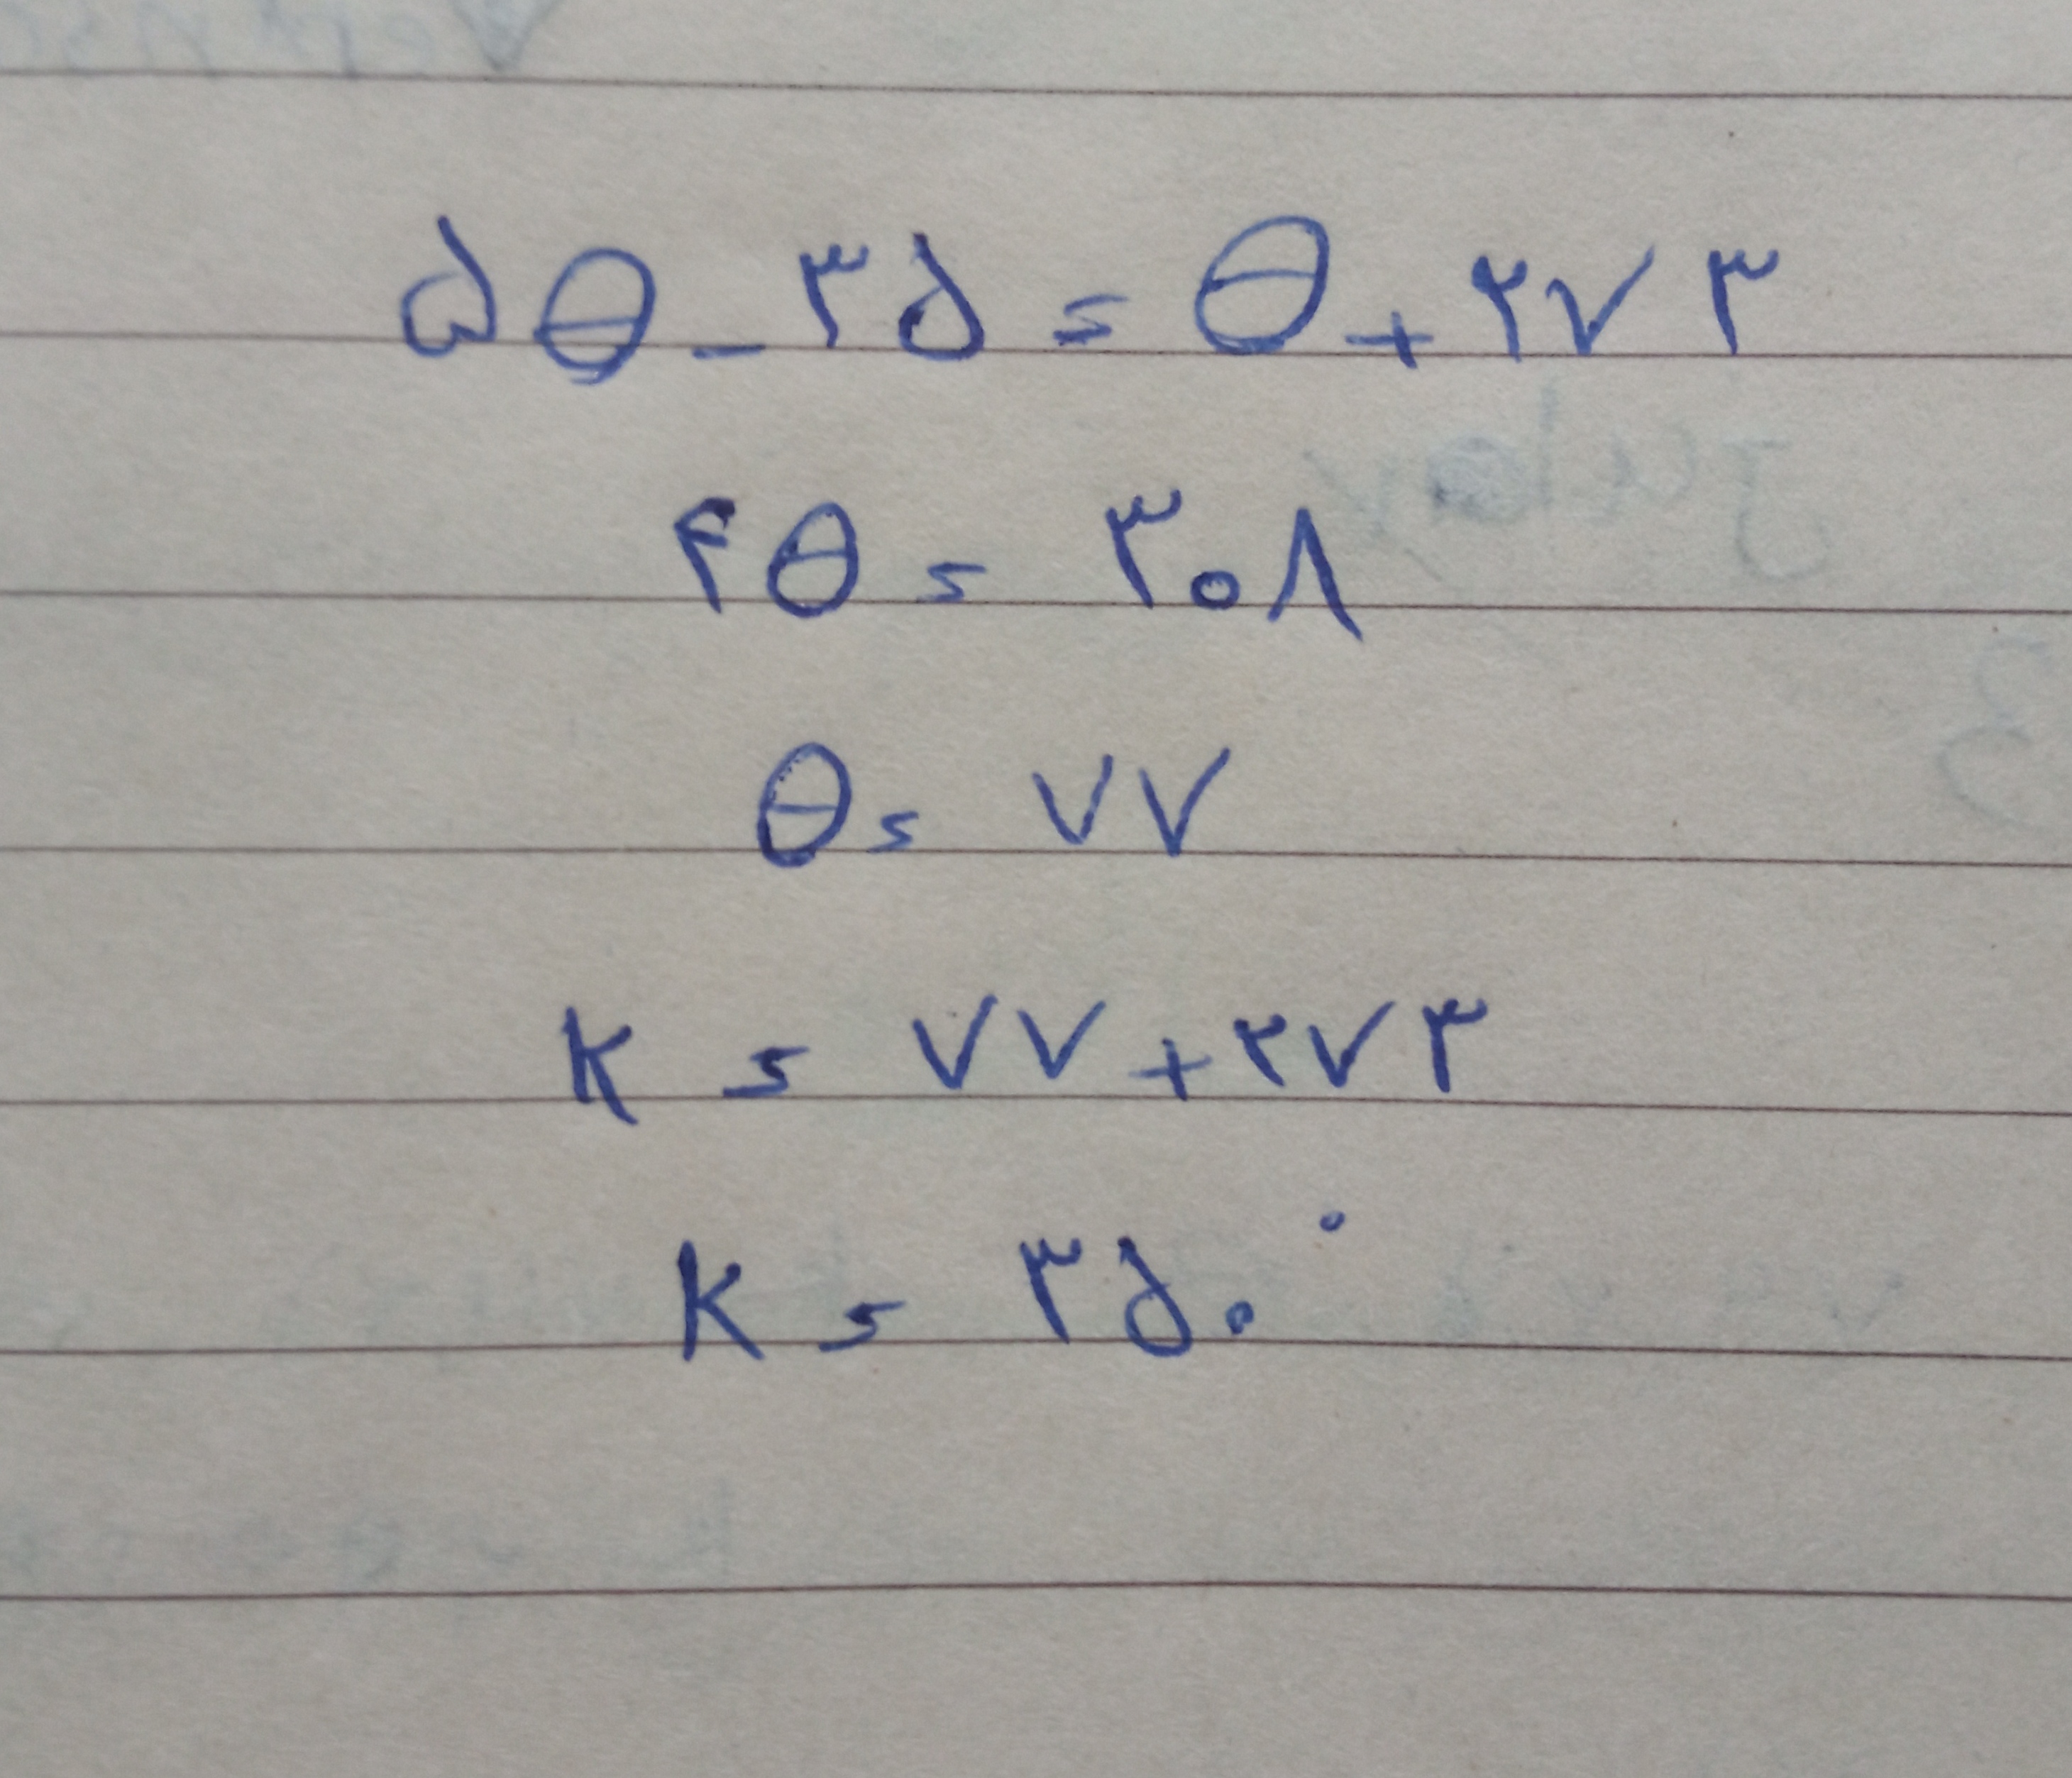 ۵θ - ۳۵ = θ + ۲۷۳
۴θ = ۳۰۸
θ = ۷۷
K = ۷۷ + ۲۷۳
K = ۳۵۰°